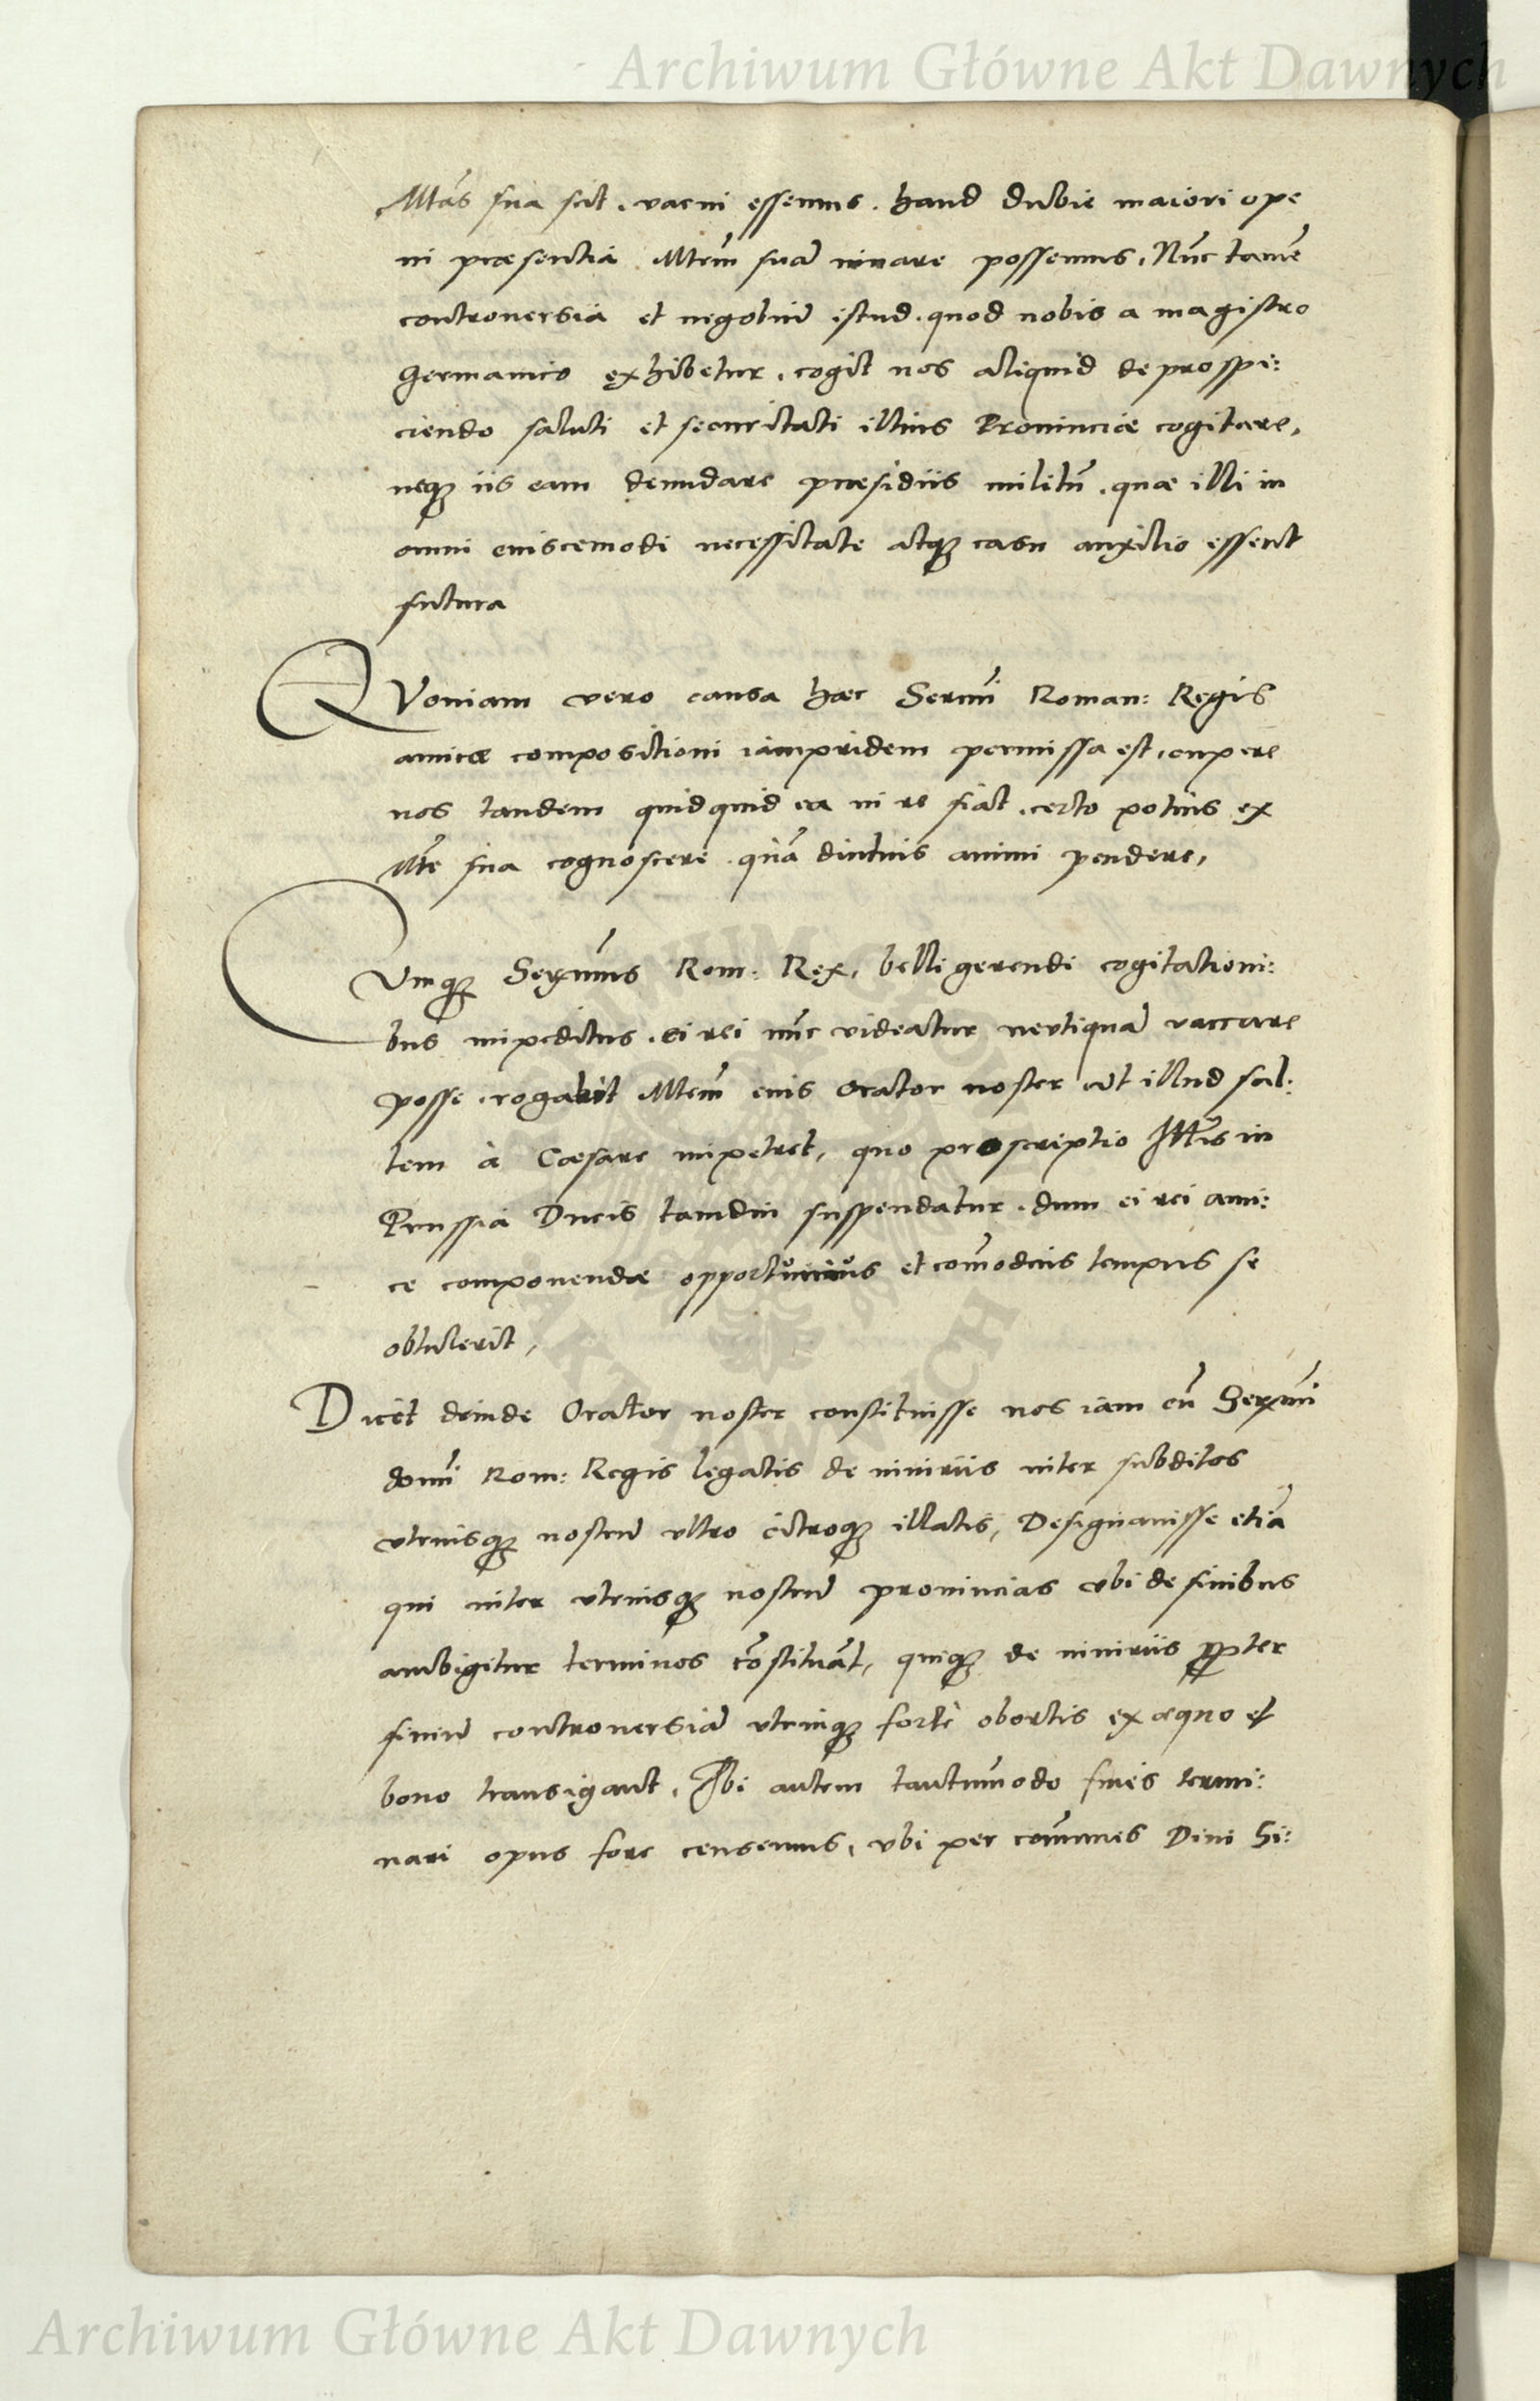 Archiwum Główne Akt Dawnych
Mtas sua scit, vacui essemus, haud dubie maiori ope
in praesentia Mtem suā iuvare possemus, Nūc tamē
controversia et negotiū istud, quod nobis a magistro
Germanico exhibetur, cogit nos aliquid de prospi:
ciendo saluti et securitati illius Provinciae cogitare,
neqꝫ iis eam denudare praesidiis militū, quae illi in
omni eiuscemodi necessitate atqꝫ casu auxilio essent
futura
QVoniam vero causa haec Sermi Roman: Regis
amicae compositioni iampridem permissa est, cupere
nos tandem quidquid ea in re fiat, certo potius ex
Mte sua cognoscere, quā diutius animi pendere,
CVmqꝫ Serxmus Rom: Rex, belli gerendi cogitationi:
bus impeditus, ei rei nūc videatur neutiquā vaccare
posse, rogabit Mtem eius Orator noster ut illud sal:
tem à Caesare impetret, quo proscriptio Illtris in
Prussia Ducis tamdiu suspendatur, dum ei rei ami:
ce componendae opportunius et cōmodius tempus se
obtulerit,
Dicet deinde Orator noster constituisse nos iam cū Serxmi
domi Rom: Regis legatis de iniuriis inter subditos
utriusqꝫ nostrū ultro citroqꝫ illatis, Designavisse etiā
qui inter utriusqꝫ nostrū provincias ubi de finibus
ambigitur terminos cōstituāt, quiqꝫ de iniuriis ꝓpter
finiū controversiā utrinqꝫ fortè obortis ex aequo et
bono transigant, Ibi autem tantūmodo fines termi:
nari opus fore censemus, ubi per cōmunes Divi Si:
ARCHIWUM GŁÓWNE AKT DAWNYCH
Archiwum Główne Akt Dawnych